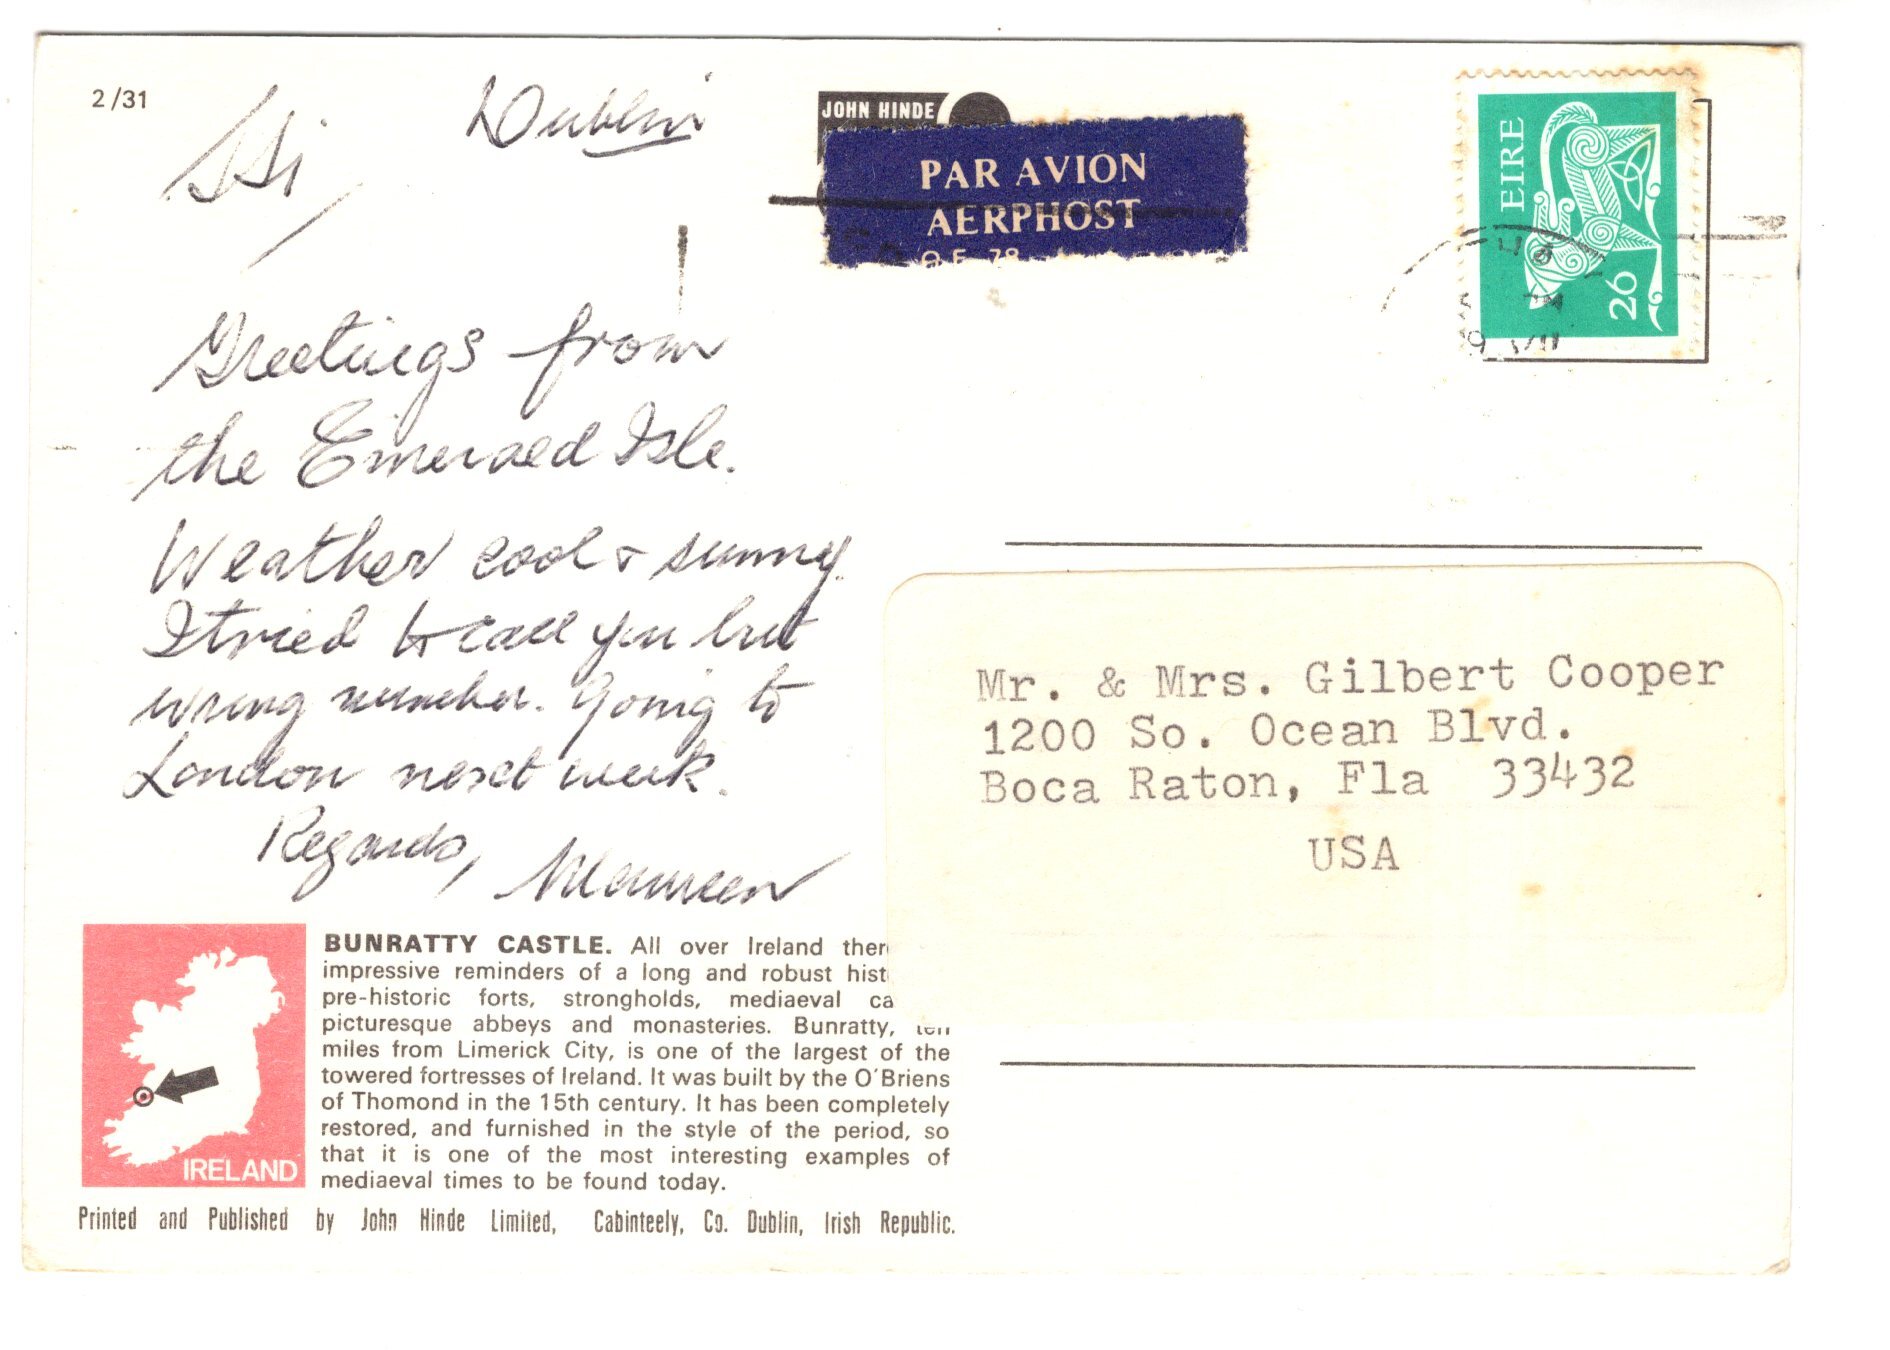 2/31
Hi
Dublin
Greetings from
the Emerald Isle.
Weather cool & sunny.
I tried to call you but
wrong number. Going to
London next week.
Regards, Maureen
BUNRATTY CASTLE. All over Ireland
impressive reminders of a long and robust
pre-historic forts, strongholds, mediaeval
picturesque abbeys and monasteries. Bunratty, ten
miles from Limerick City, is one of the largest of the
towered fortresses of Ireland. It was built by the O'Briens
of Thomond in the 15th century. It has been completely
restored, and furnished in the style of the period, so
that it is one of the most interesting examples of
mediaeval times to be found today.
IRELAND
Printed and Published by John Hinde Limited, Cabinteely, Co. Dublin, Irish Republic.
JOHN HINDE
PAR AVION
AERPHOST
EIRE
26
Mr. & Mrs. Gilbert Cooper
1200 So. Ocean Blvd.
Boca Raton, Fla 33432
USA